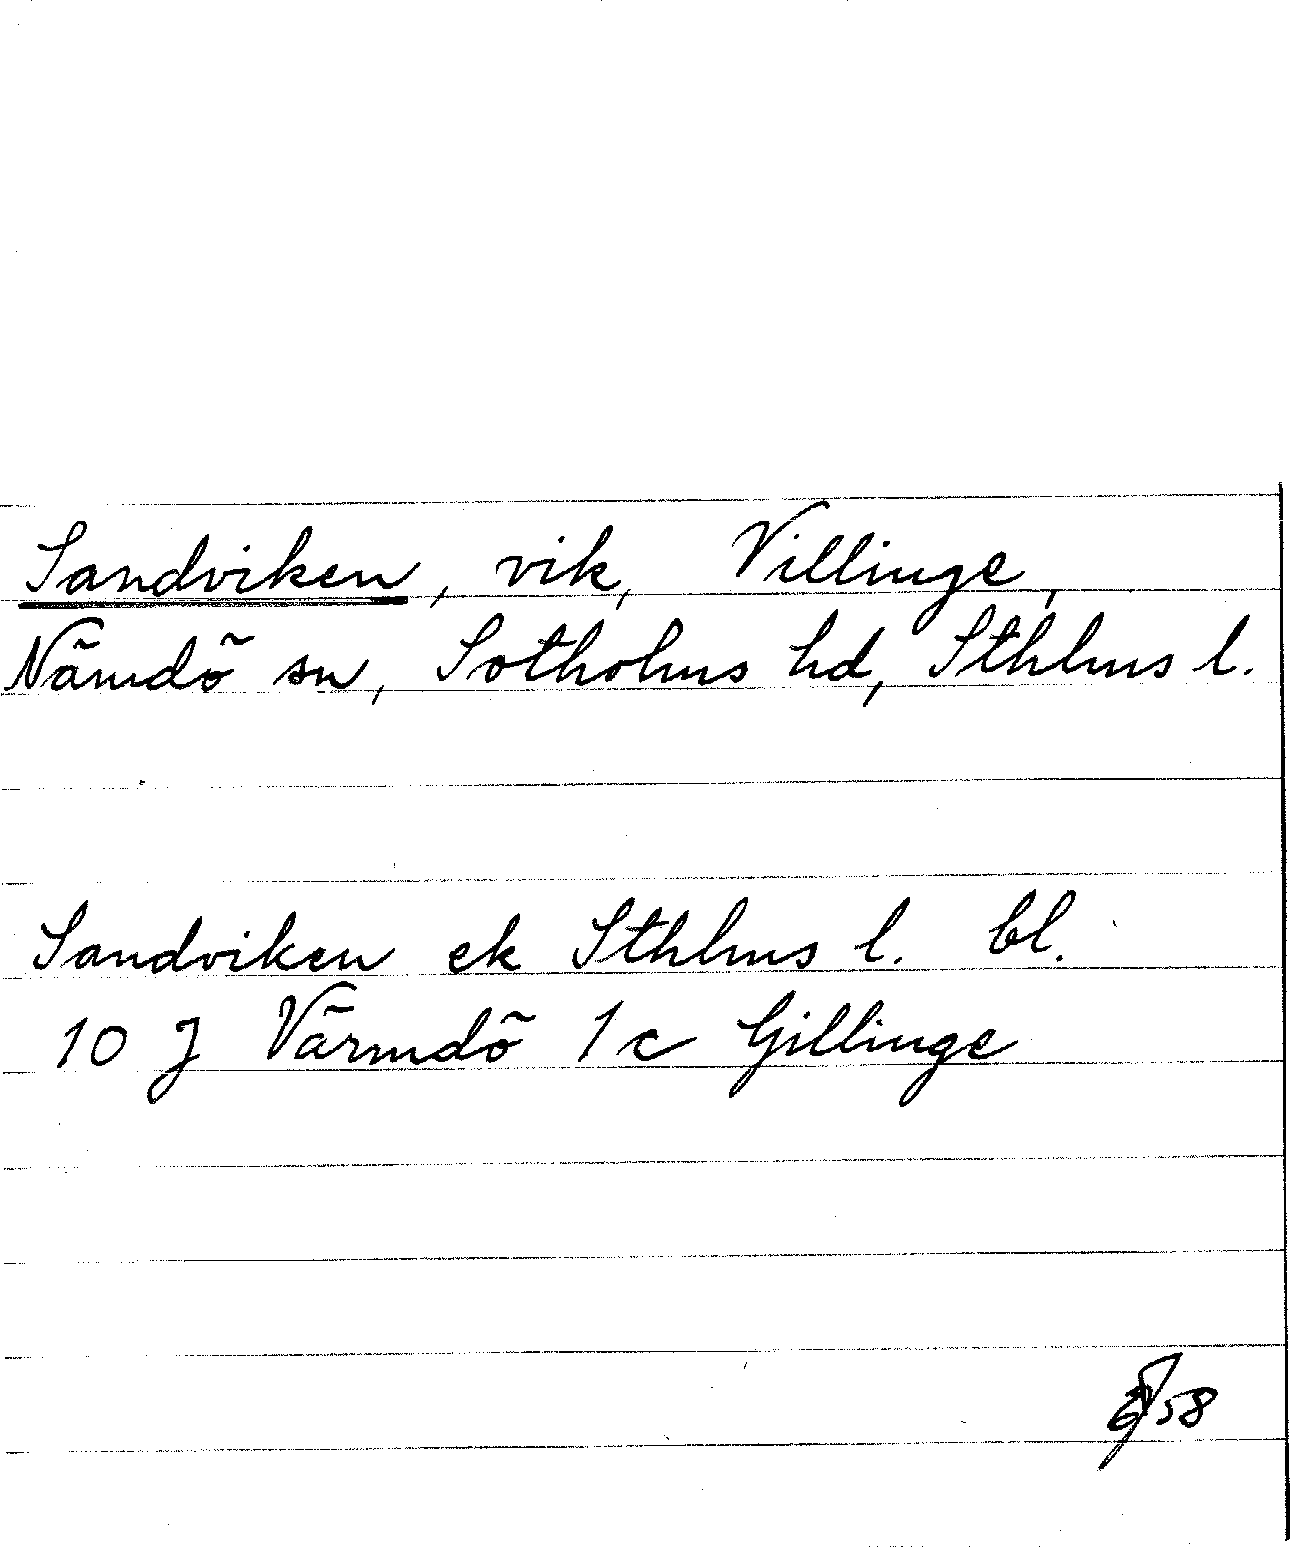 Sandviken, vik, Villinge,
Nämdö sn, Sotholms hd, Sthlms l.
Sandviken ek Sthlms l. bl.
10 J Värmdö 1c Gillinge
58